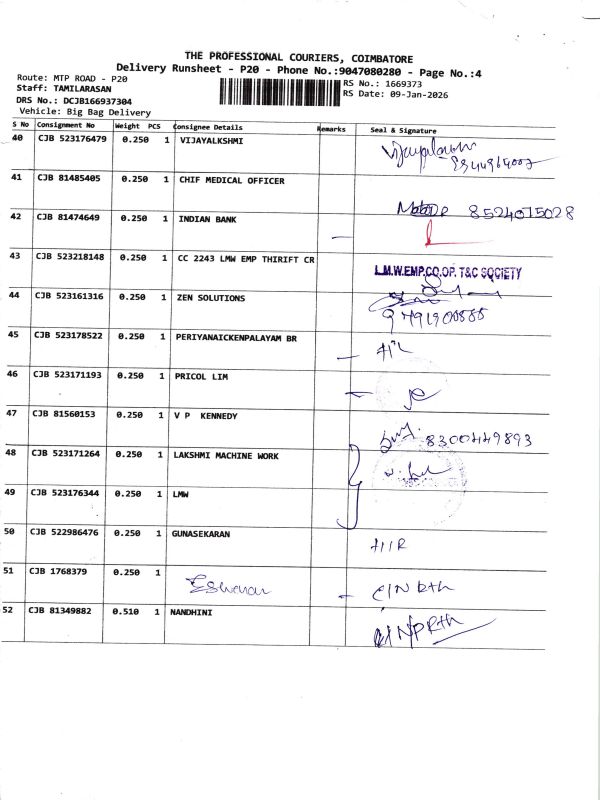 THE PROFESSIONAL COURIERS, COIMBATORE
Delivery Runsheet - P20 - Phone No.:9047080280 - Page No.:4
Route: MTP ROAD - P20
Staff: TAMILARASAN
DRS No.: DCJB166937304
Vehicle: Big Bag Delivery
RS No.: 1669373
RS Date: 09-Jan-2026
S No Consignment No Weight PCS Consignee Details Remarks Seal & Signature
40 CJB 523176479 0.250 1 VIJAYALKSHMI
41 CJB 81485405 0.250 1 CHIF MEDICAL OFFICER
8524075028
42 CJB 81474649 0.250 1 INDIAN BANK
43 CJB 523218148 0.250 1 CC 2243 LMW EMP THIRIFT CR
L.M.W.EMP.CO.OP. T&C SOCIETY
44 CJB 523161316 0.250 1 ZEN SOLUTIONS
45 CJB 523178522 0.250 1 PERIYANAICKENPALAYAM BR
46 CJB 523171193 0.250 1 PRICOL LIM
47 CJB 81560153 0.250 1 V P KENNEDY
8300449893
48 CJB 523171264 0.250 1 LAKSHMI MACHINE WORK
49 CJB 523176344 0.250 1 LMW
50 CJB 522986476 0.250 1 GUNASEKARAN
51 CJB 1768379 0.250 1
52 CJB 81349882 0.510 1 NANDHINI